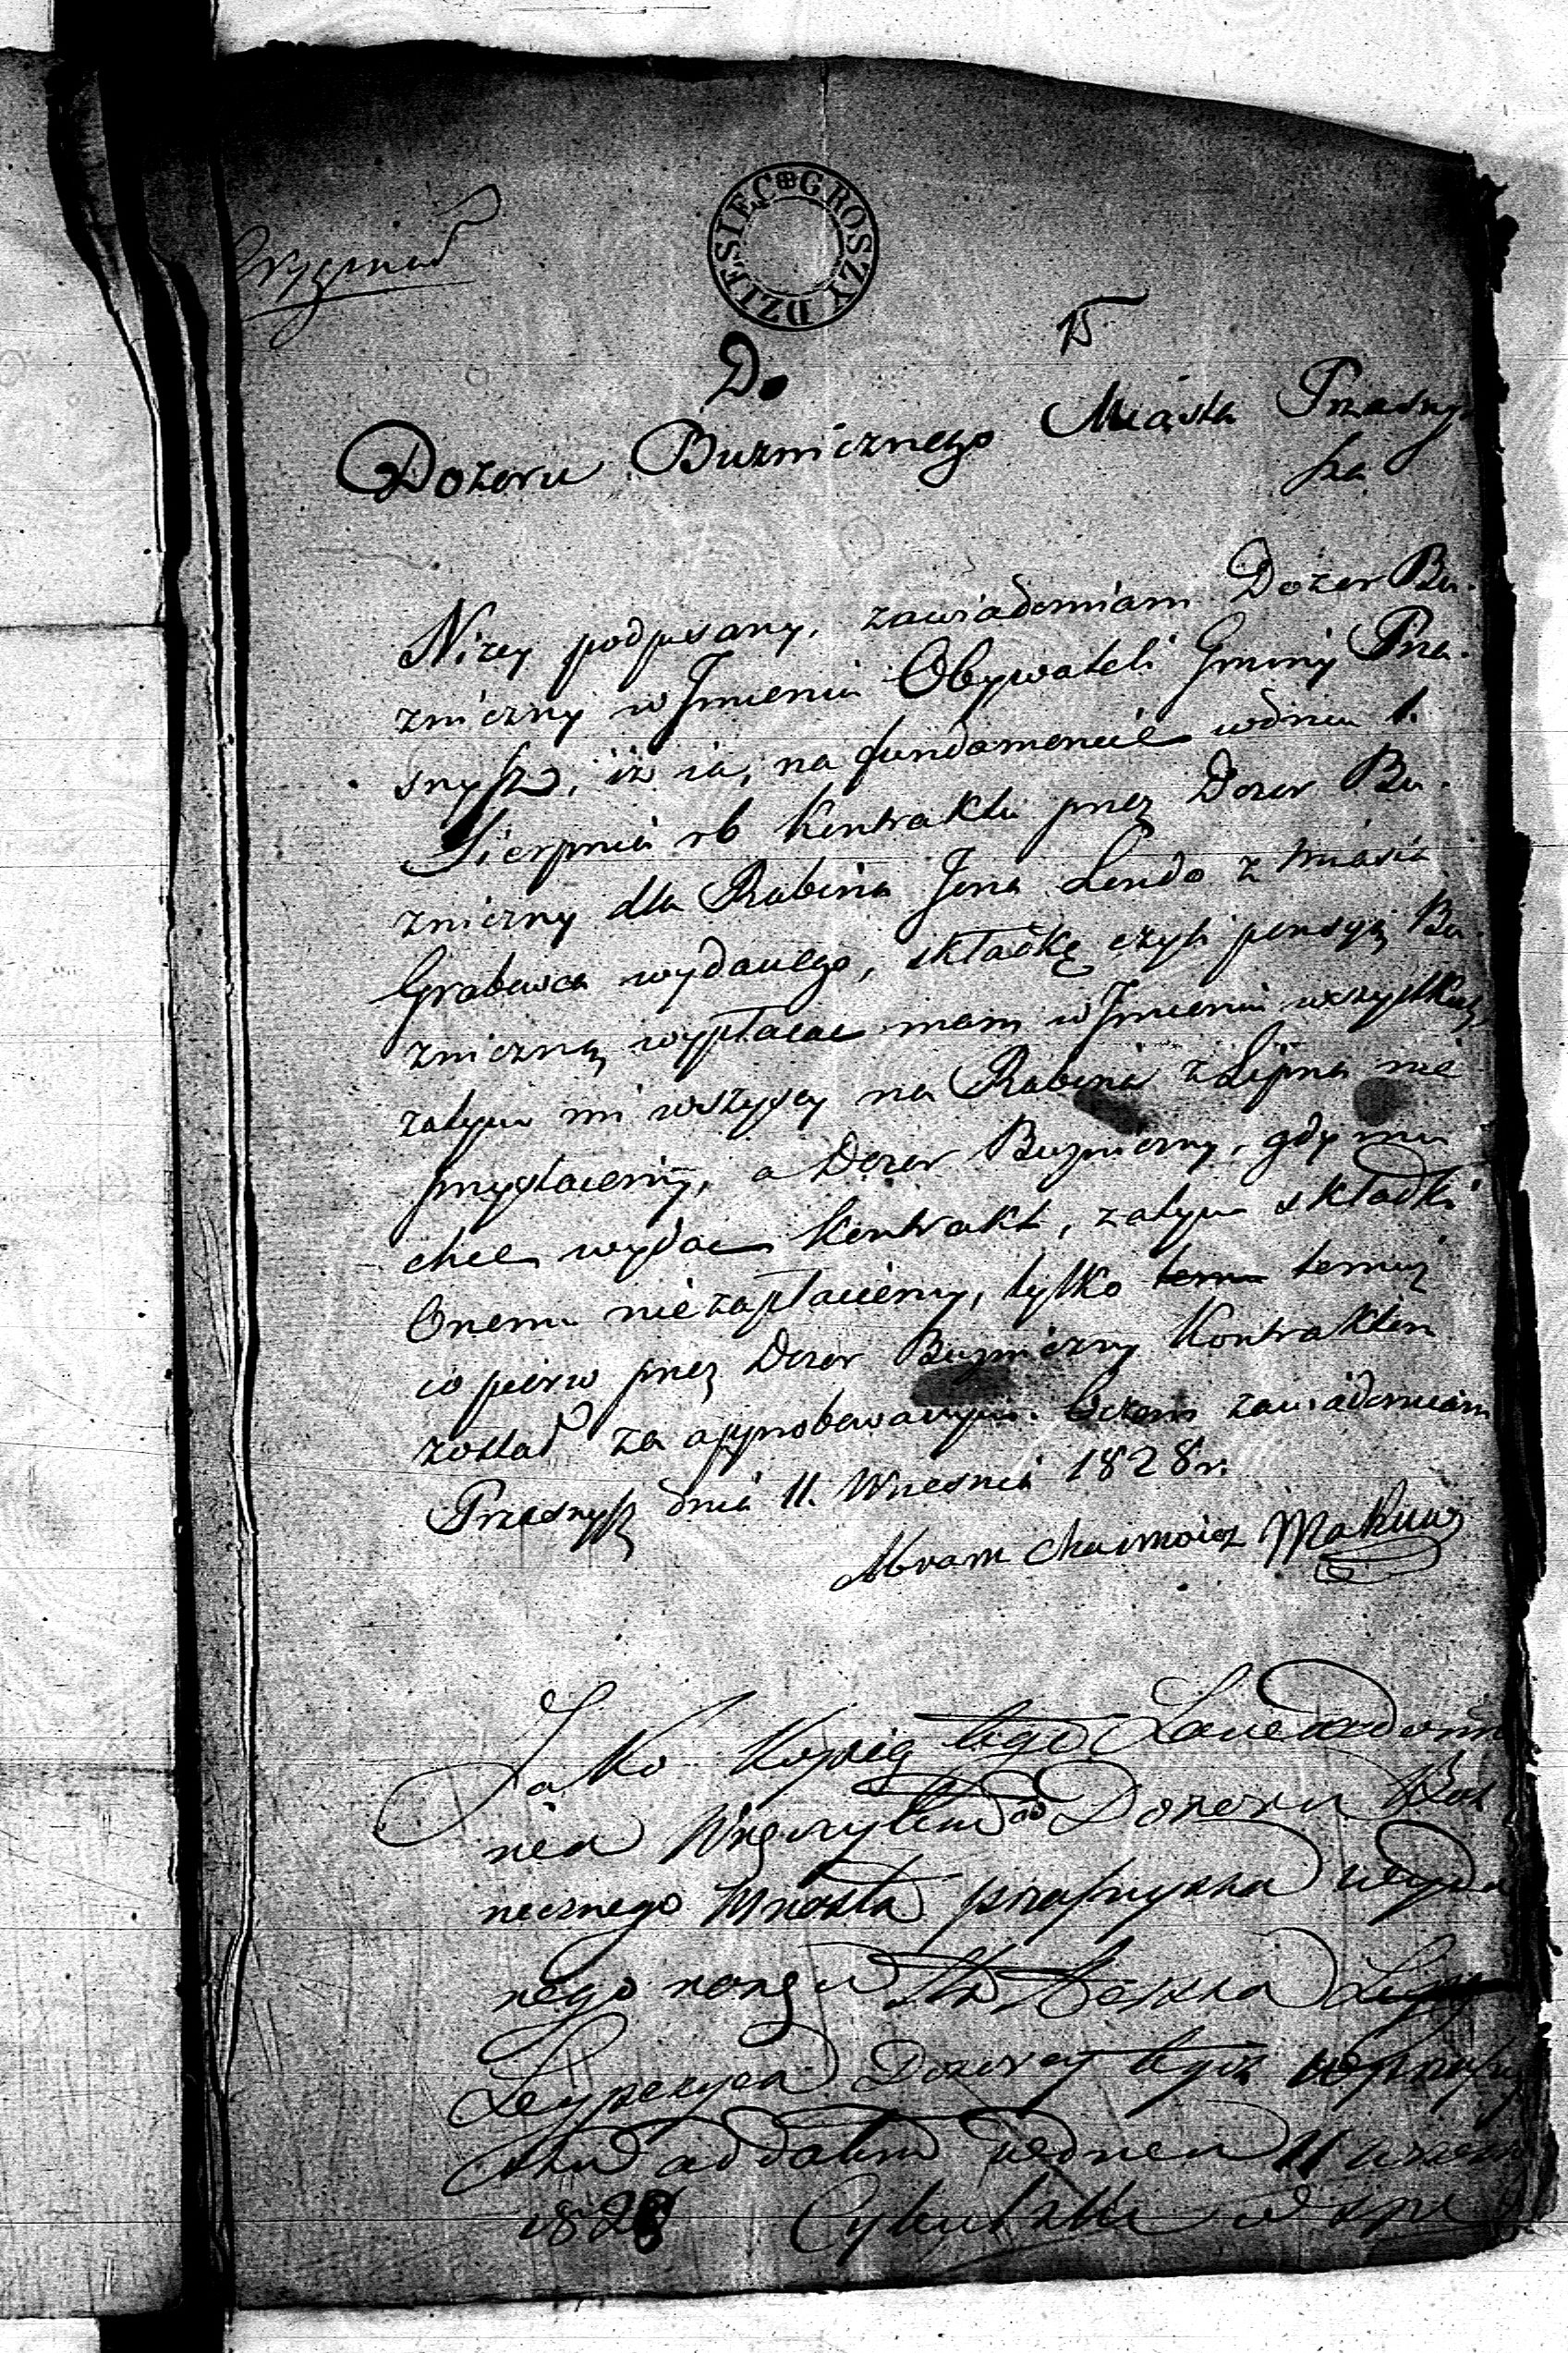 Oryginał
DZIESIĘC GROSZY
15
Do
Dozoru Buznicznego Miasta Przasny-
sza
Nizey podpisany, zawiadomiam Dozor Bu-
zniczny w Jmieniu Obywateli Gminy Prza-
snysz, iż ia, na fundamencie w dniu 1.
Sierpnia rb Kontraktu przez Dozor Bu-
zniczny dla Rabina Jona Lendo z miasta
Grabowca wydanego, składkę czyli pensyią Bu-
zniczną wypłacac mam w Jmieniu wszystkich,
zatym mi wszyscy na Rabina z Lipna nie
przystaiemy, a Dozor Buzniczny, gdy mu
chce wydac Kontrakt, zatym składki
Onemu niezapłaciemy, tylko temu temuż
co pierw przez Dozor Buzniczny Kontraktem
został za approbowanym. Oczem zawiadomiam
Przasnysz dnia 11. Wrzesnia 1828 r.
Abram Chaimowicz Makuw
Jako Kopię tego Zawiadomie
nia Dozoru Buz
necznego Miasta przasnysza
nego
Dozorcy tegoz
oddałem w dniu 11
1828 Cybulski